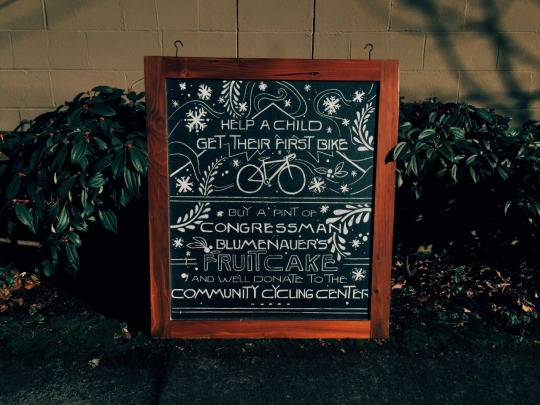 HELP A CHILD
GET THEIR FIRST BIKE
BUY A PINT OF
CONGRESSMAN
BLUMENAUER'S
FRUITCAKE
AND WE'LL DONATE TO THE
COMMUNITY CYCLING CENTER